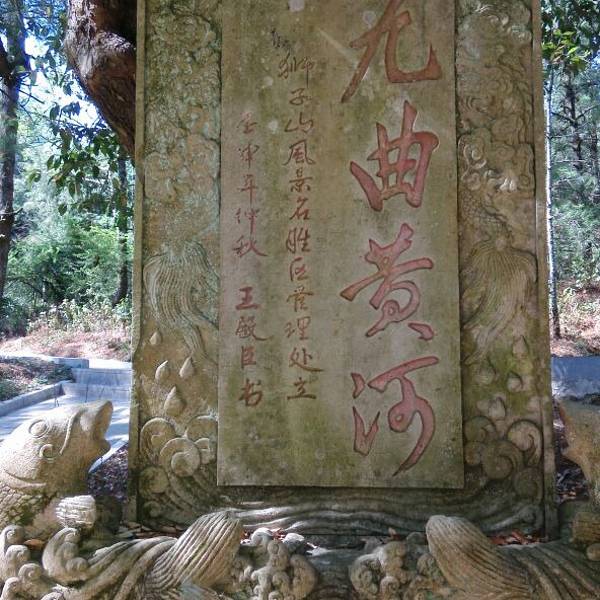 九曲黄河
狮子山风景名胜区管理处立
壬申年仲秋 王敏臣书